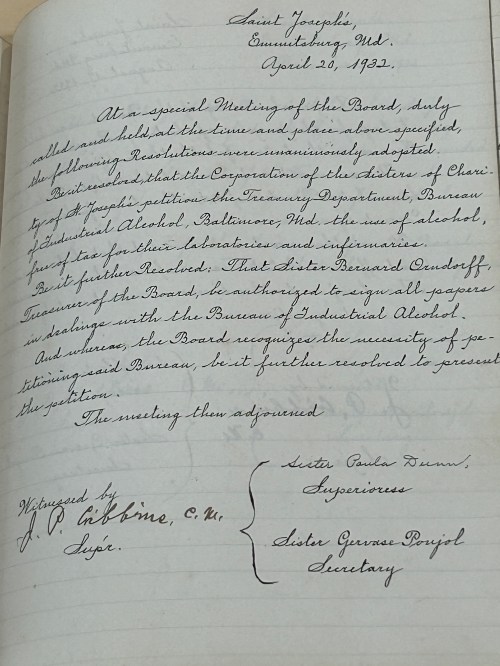 Saint Joseph's,
Emmitsburg, Md.
April 20, 1932.
At a special Meeting of the Board, duly
called and held, at the time and place above specified,
the following Resolutions were unanimously adopted.
Be it resolved, that the Corporation of the Sisters of Chari-
ty of St. Joseph's petition the Treasury Department, Bureau
of Industrial Alcohol, Baltimore, Md. the use of alcohol,
free of tax for their laboratories and infirmaries.
Be it further Resolved: That Sister Bernard Orndorff,
Treasurer of the Board, be authorized to sign all papers
in dealings with the Bureau of Industrial Alcohol.
And whereas, the Board recognizes the necessity of pe-
titioning said Bureau, be it further resolved to present
the petition.
The meeting then adjourned
Sister Paula Dunn,
Superioress
Witnessed by
J. P. Cribbins, C.M.
Sup'r.
Sister Gervase Poujol
Secretary